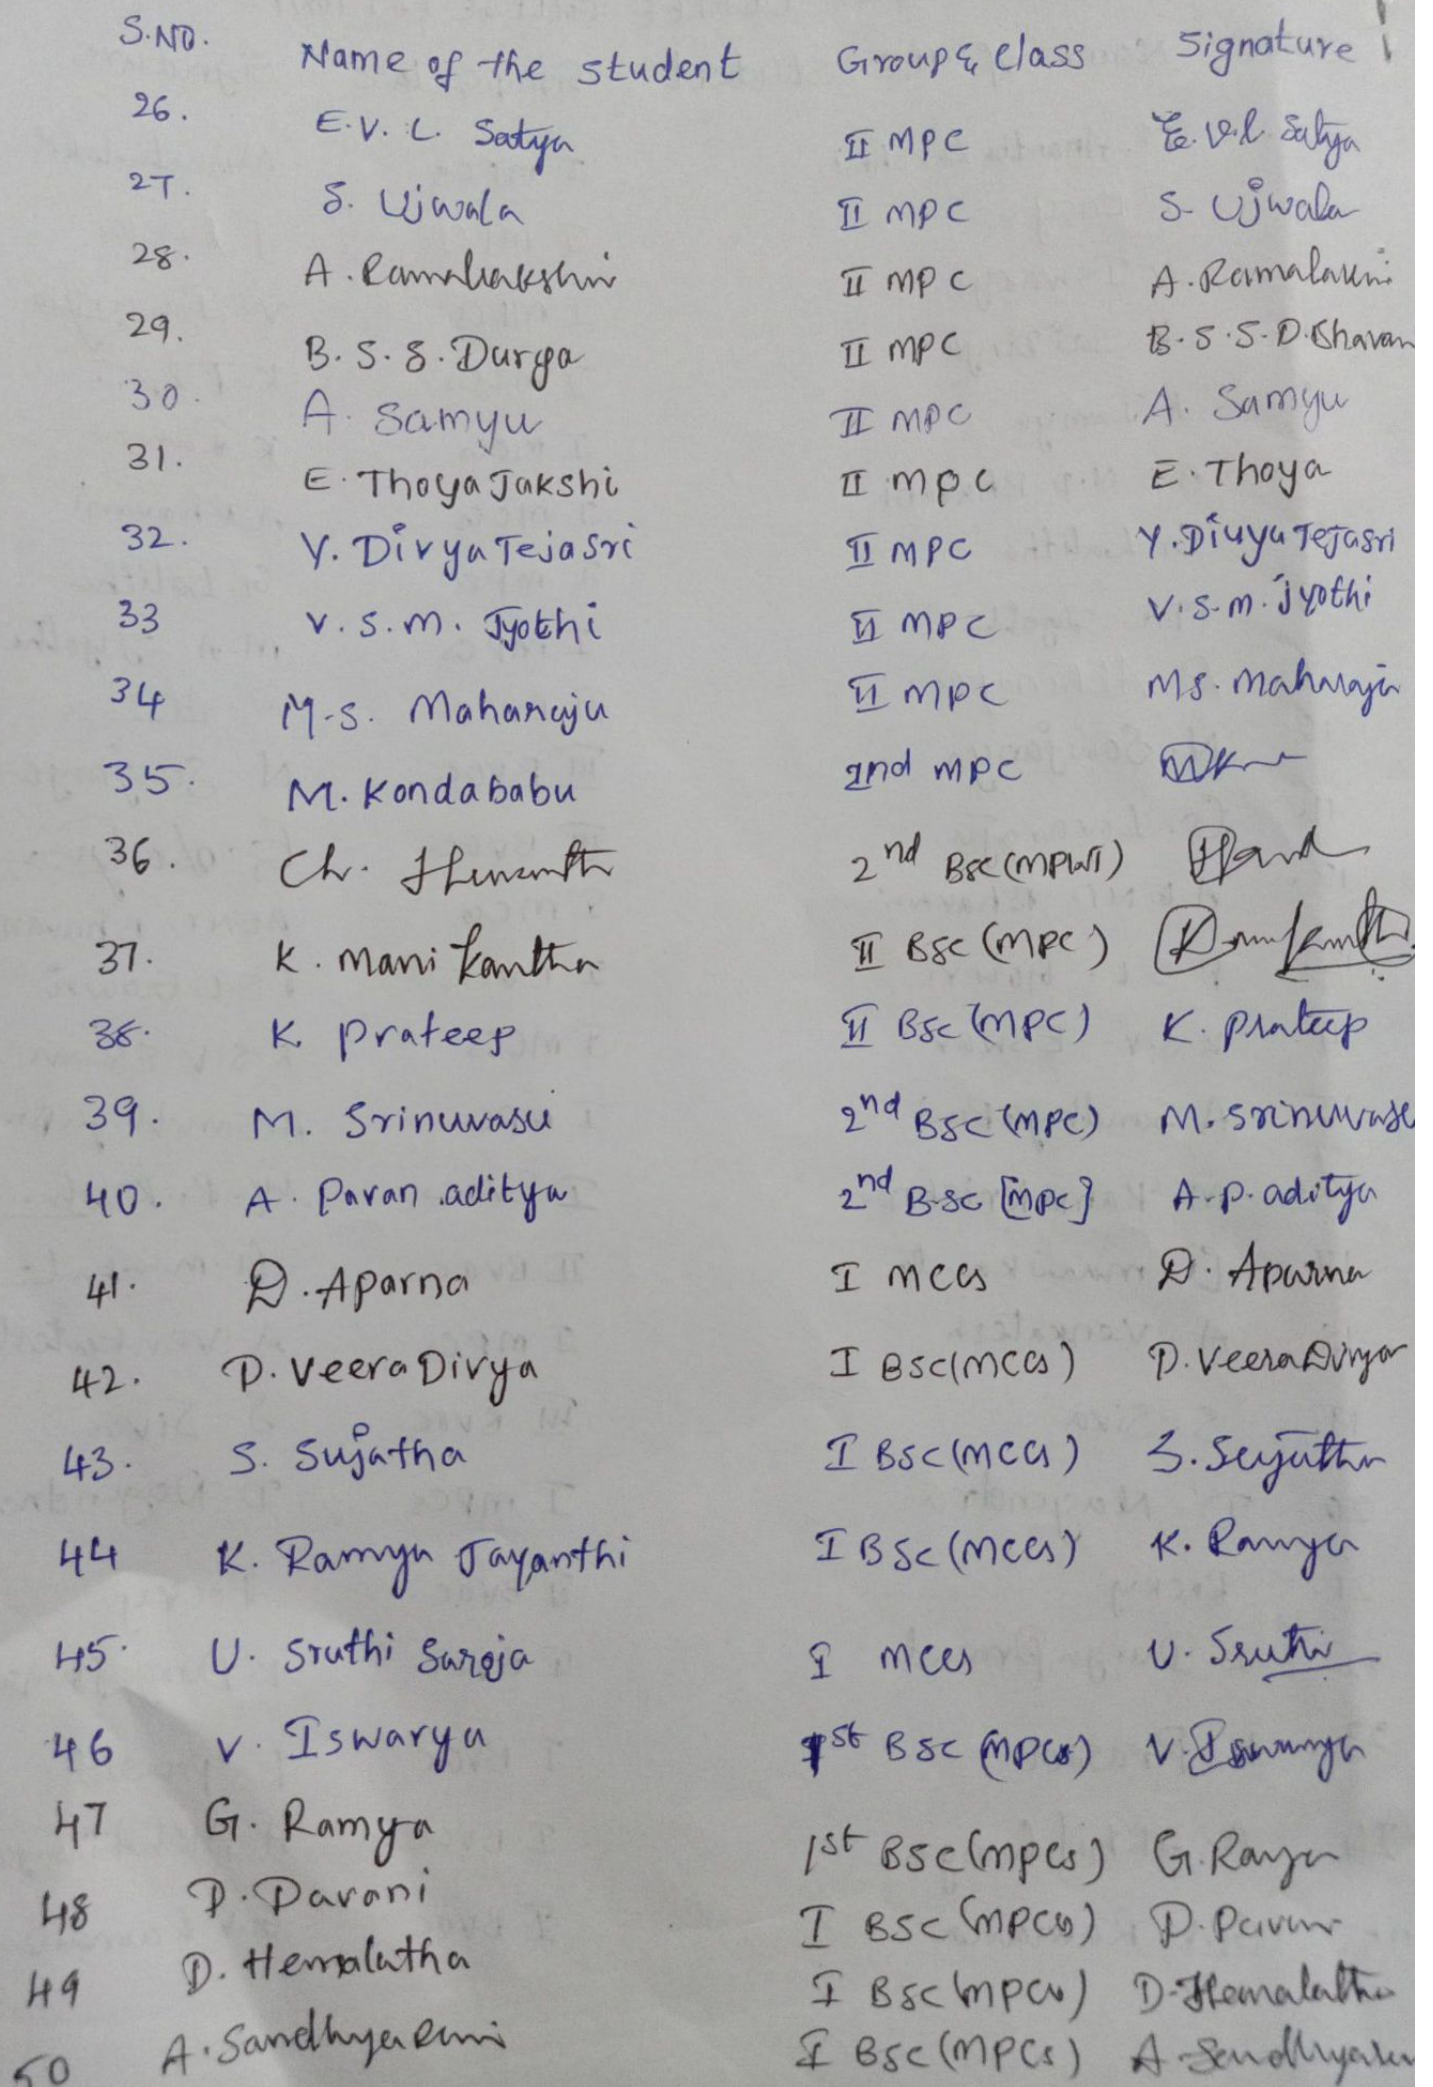 S.NO. Name of the student Group & Class Signature
26. E.V.L. Satya II MPC E.V.L Satya
27. S. Ujwala II MPC S. Ujwala
28. A. Ramalakshmi II MPC A. Ramalaxmi
29. B.S.S. Durga II MPC B.S.S.D.Bhavan
30. A. Samyu II MPC A. Samyu
31. E. Thoya Jakshi II MPC E. Thoya
32. Y. Divya Tejasri II MPC Y. Divya Tejasri
33 V.S.M. Jyothi II MPC V.S.M. Jyothi
34 M.S. Maharaju II MPC MS. Maharaju
35. M. Kondababu 2nd MPC
36. Ch. 2nd BSC
37. K. Mani Kantha II BSC (MPC)
38. K. Prateep II BSC (MPC) K. Prateep
39. M. Srinuvasu 2nd BSC (MPC) M. Srinuvasu
40. A. Pavan aditya 2nd B.SC [MPC] A.P. aditya
41. D. Aparna I MCCS D. Aparna
42. P. Veera Divya I BSC (MCCS) P. Veera Divya
43. S. Sujatha I BSC (MCCS) S. Sujatha
44 K. Ramya Jayanthi I BSC (MCCS) K. Ramya
45. U. Sruthi Saroja I MCCS U. Sruthi
46 V. Iswarya 1st BSC (MPCS) V. Iswarya
47 G. Ramya 1st BSC (MPCS) G. Ramya
48 P. Pavani I BSC (MPCS) P. Pavani
49 D. Hemalatha I BSC (MPCS) D. Hemalatha
50 A. Sandhya Rani I BSC (MPCS) A. Sandhyara